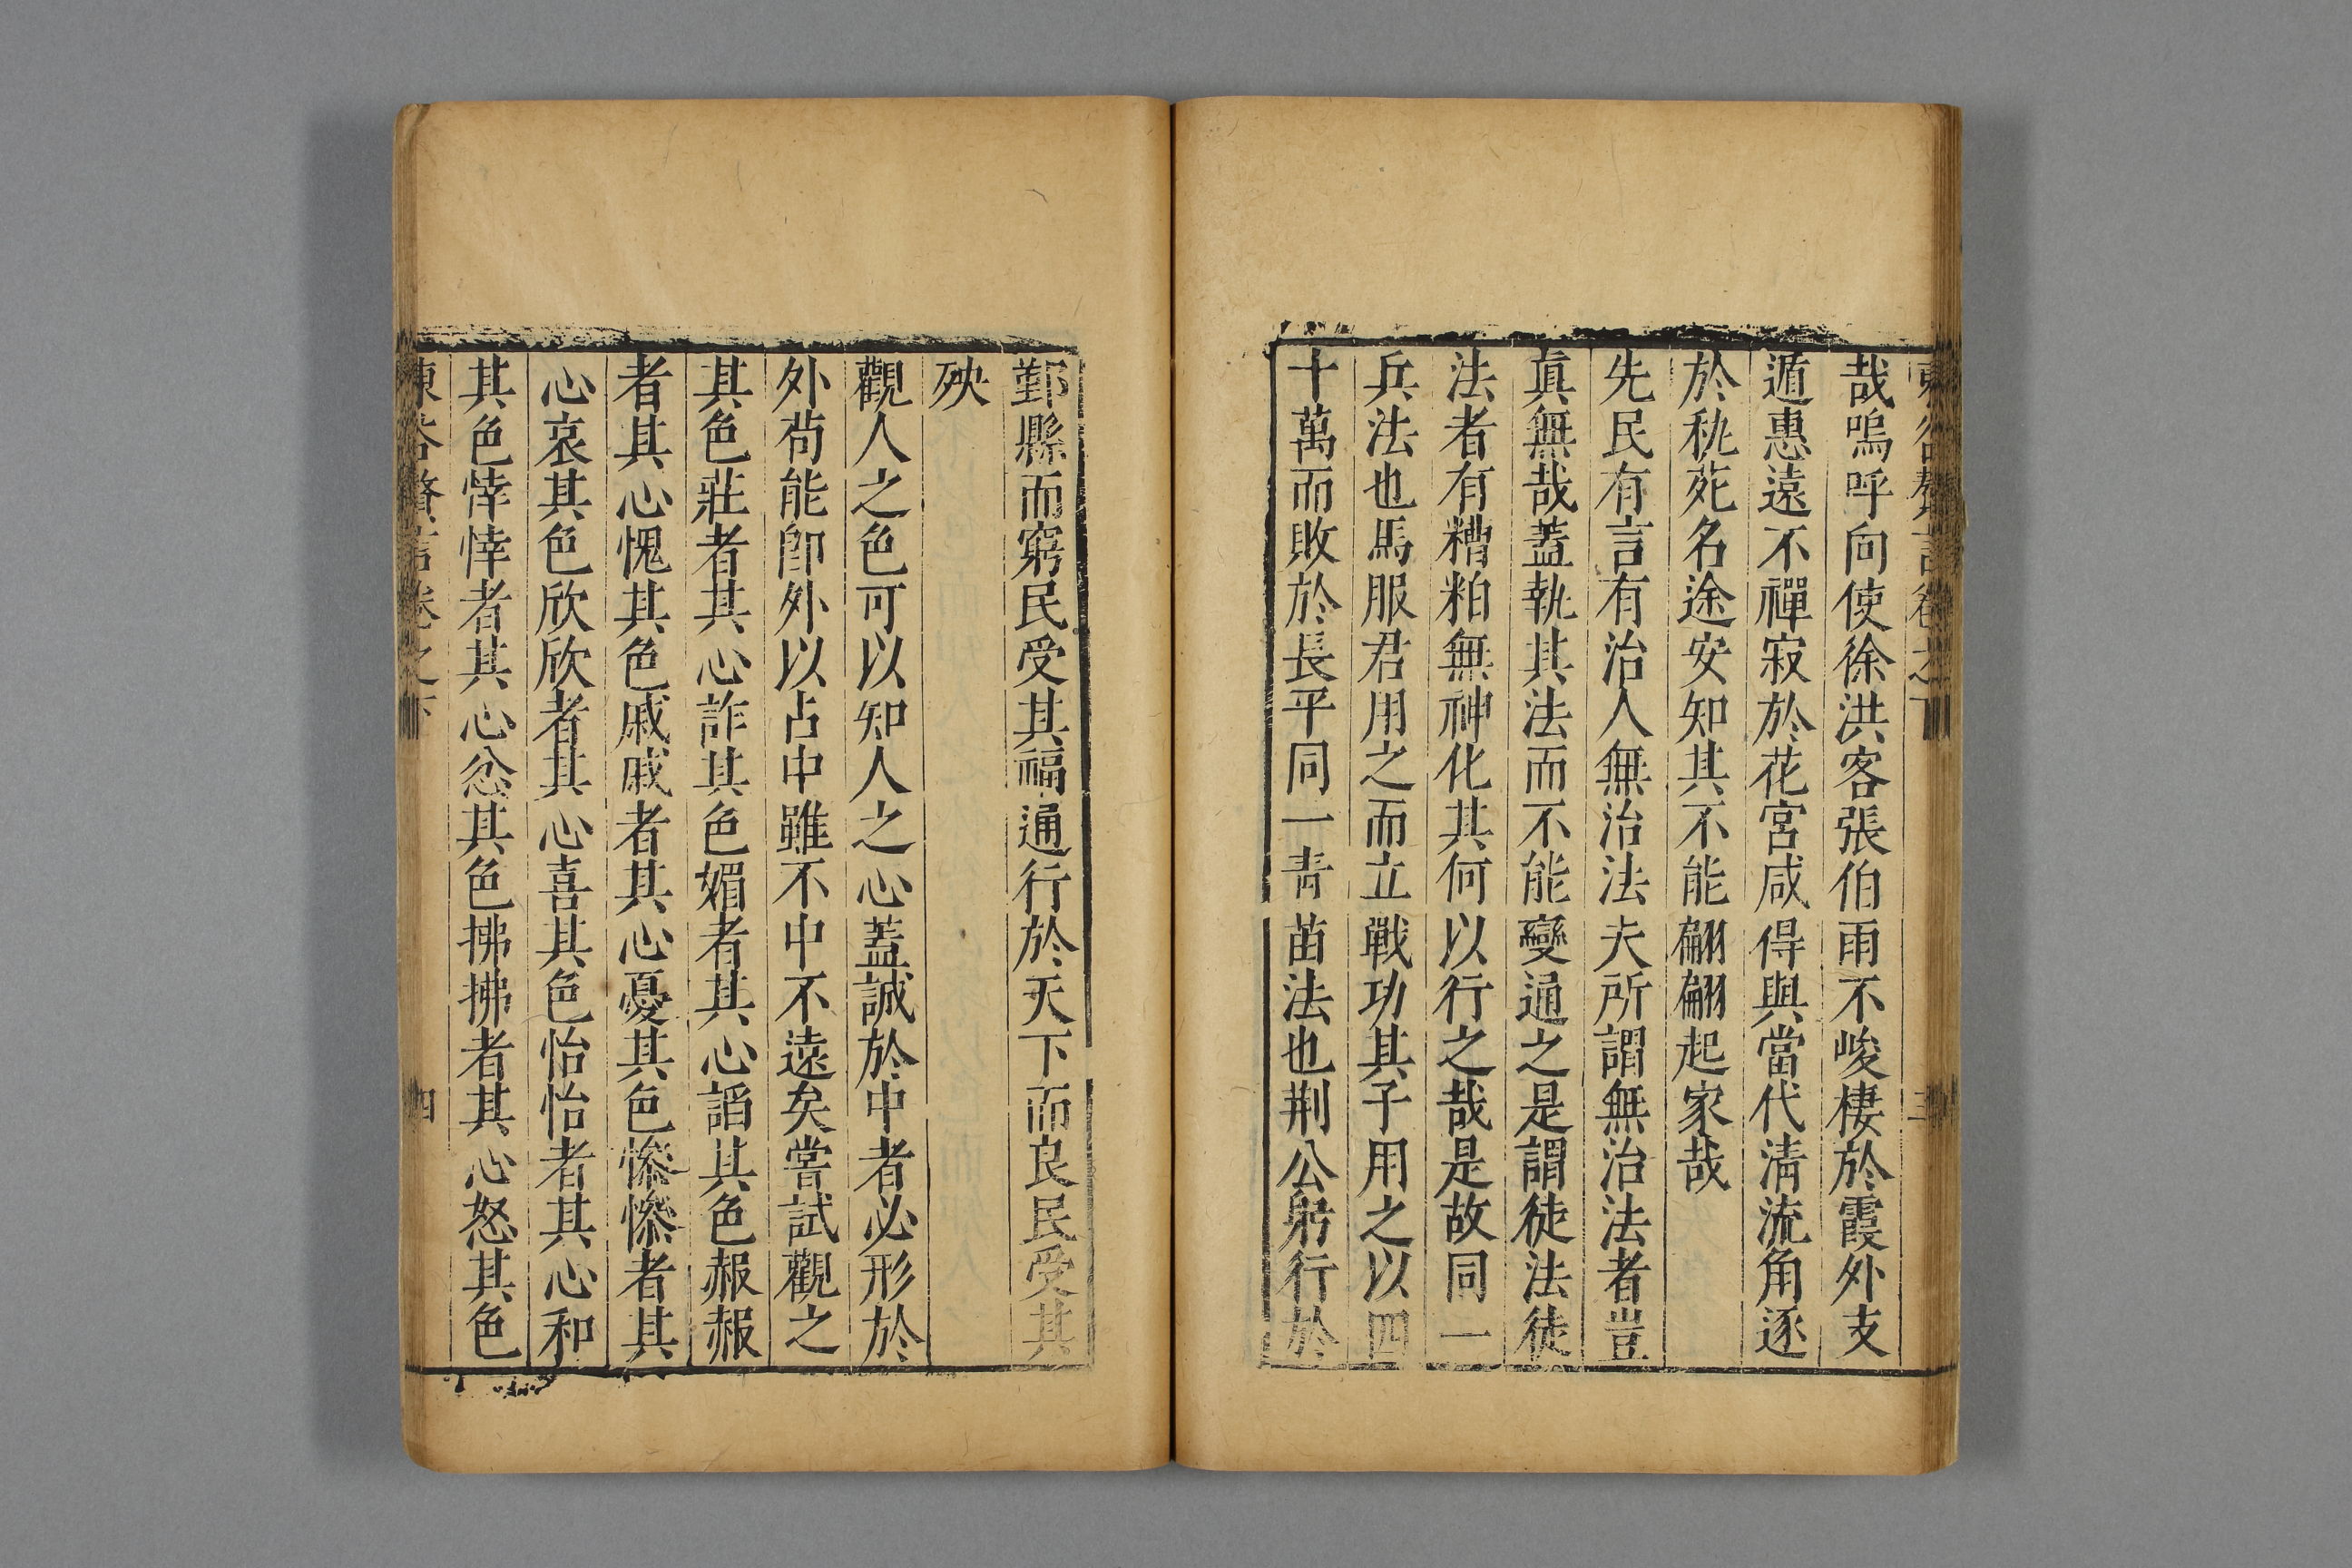 哉嗚呼向使徐洪客張伯雨不峻棲於霞外支
遁惠遠不禪寂於花宮咸得與當代淸流角逐
於秇菀名途安知其不能翩翩起家哉
先民有言有治人無治法夫所謂無治法者豈
眞無哉蓋執其法而不能變通之是謂徒法徒
法者有糟粕無神化其何以行之哉是故同一
兵法也馬服君用之而立戰功其子用之以四
十萬而敗於長平同一靑苗法也荆公躬行於
鄞縣而窮民受其福通行於天下而良民受其
殃
觀人之色可以知人之心蓋誠於中者必形於
外苟能卽外以占中雖不中不遠矣嘗試觀之
其色莊者其心詐其色媚者其心謟其色赧赧
者其心愧其色戚戚者其心憂其色慘慘者其
心哀其色欣欣者其心喜其色怡怡者其心和
其色悻悻者其心忿其色拂拂者其心怒其色
谷贅言卷之下 四